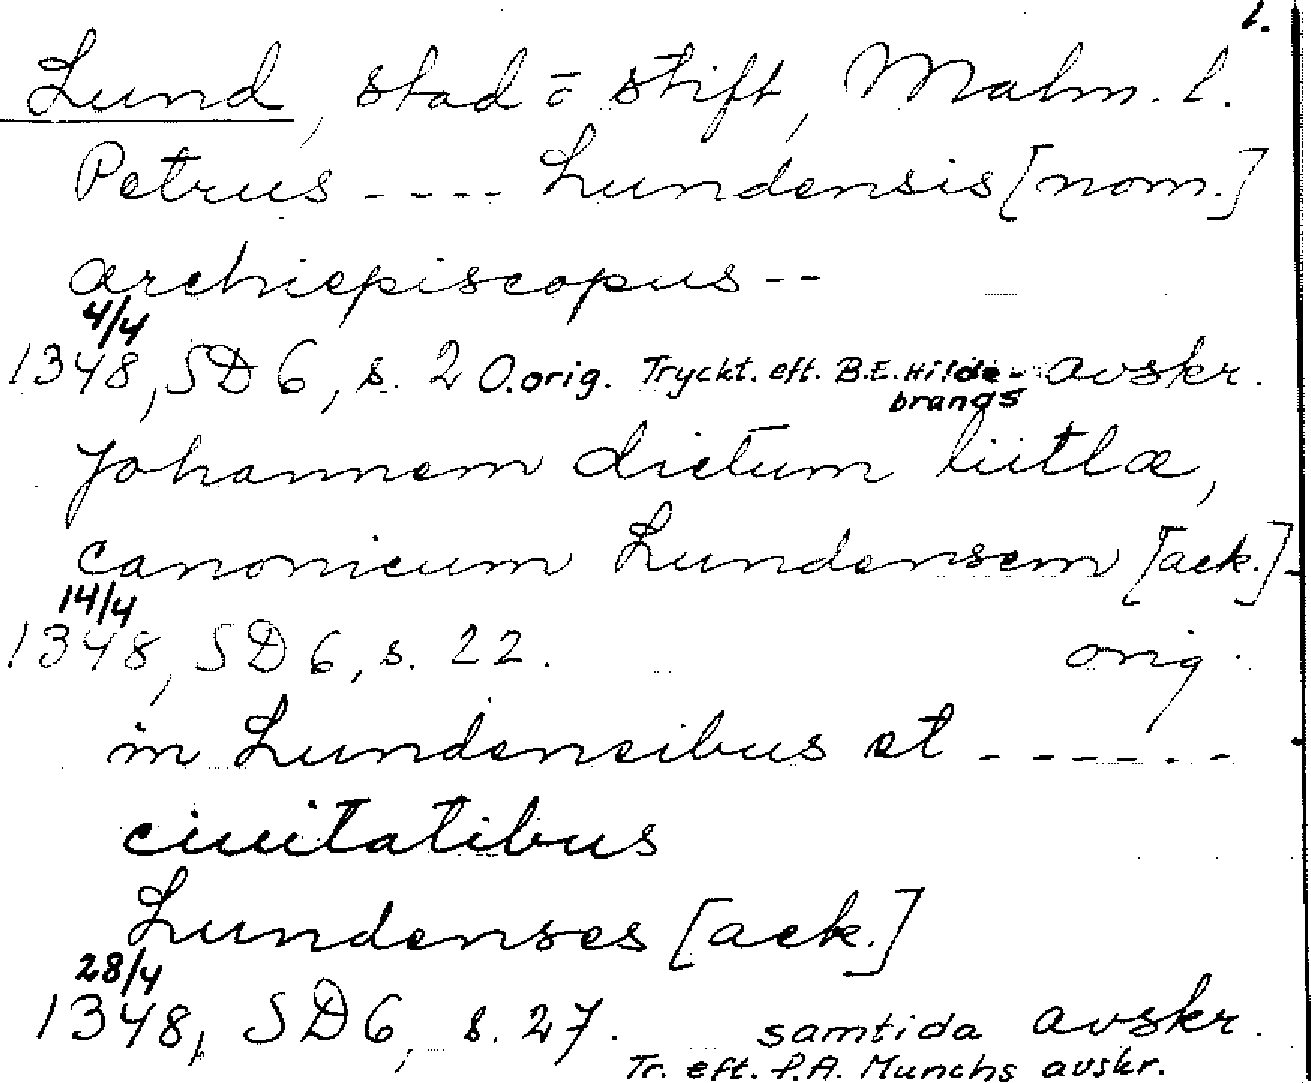 l.
Lund, stad o stift, Malm. l.
Petrus ---- Lundensis [nom.]
archiepiscopus --
4/4
1348, SD 6, s. 2 O.orig. Tryckt. eft. B.E. Hilde- avskr.
brands
Johannem dictum liitla,
canonicum Lundensem [ack.]
14/4
1348, SD 6, s. 22. orig.
in Lundensibus et ------
ciuitatibus
Lundenses [ack.]
28/4
1348, SD 6, s. 27. samtida avskr.
Tr. eft. P.A. Munchs avskr.